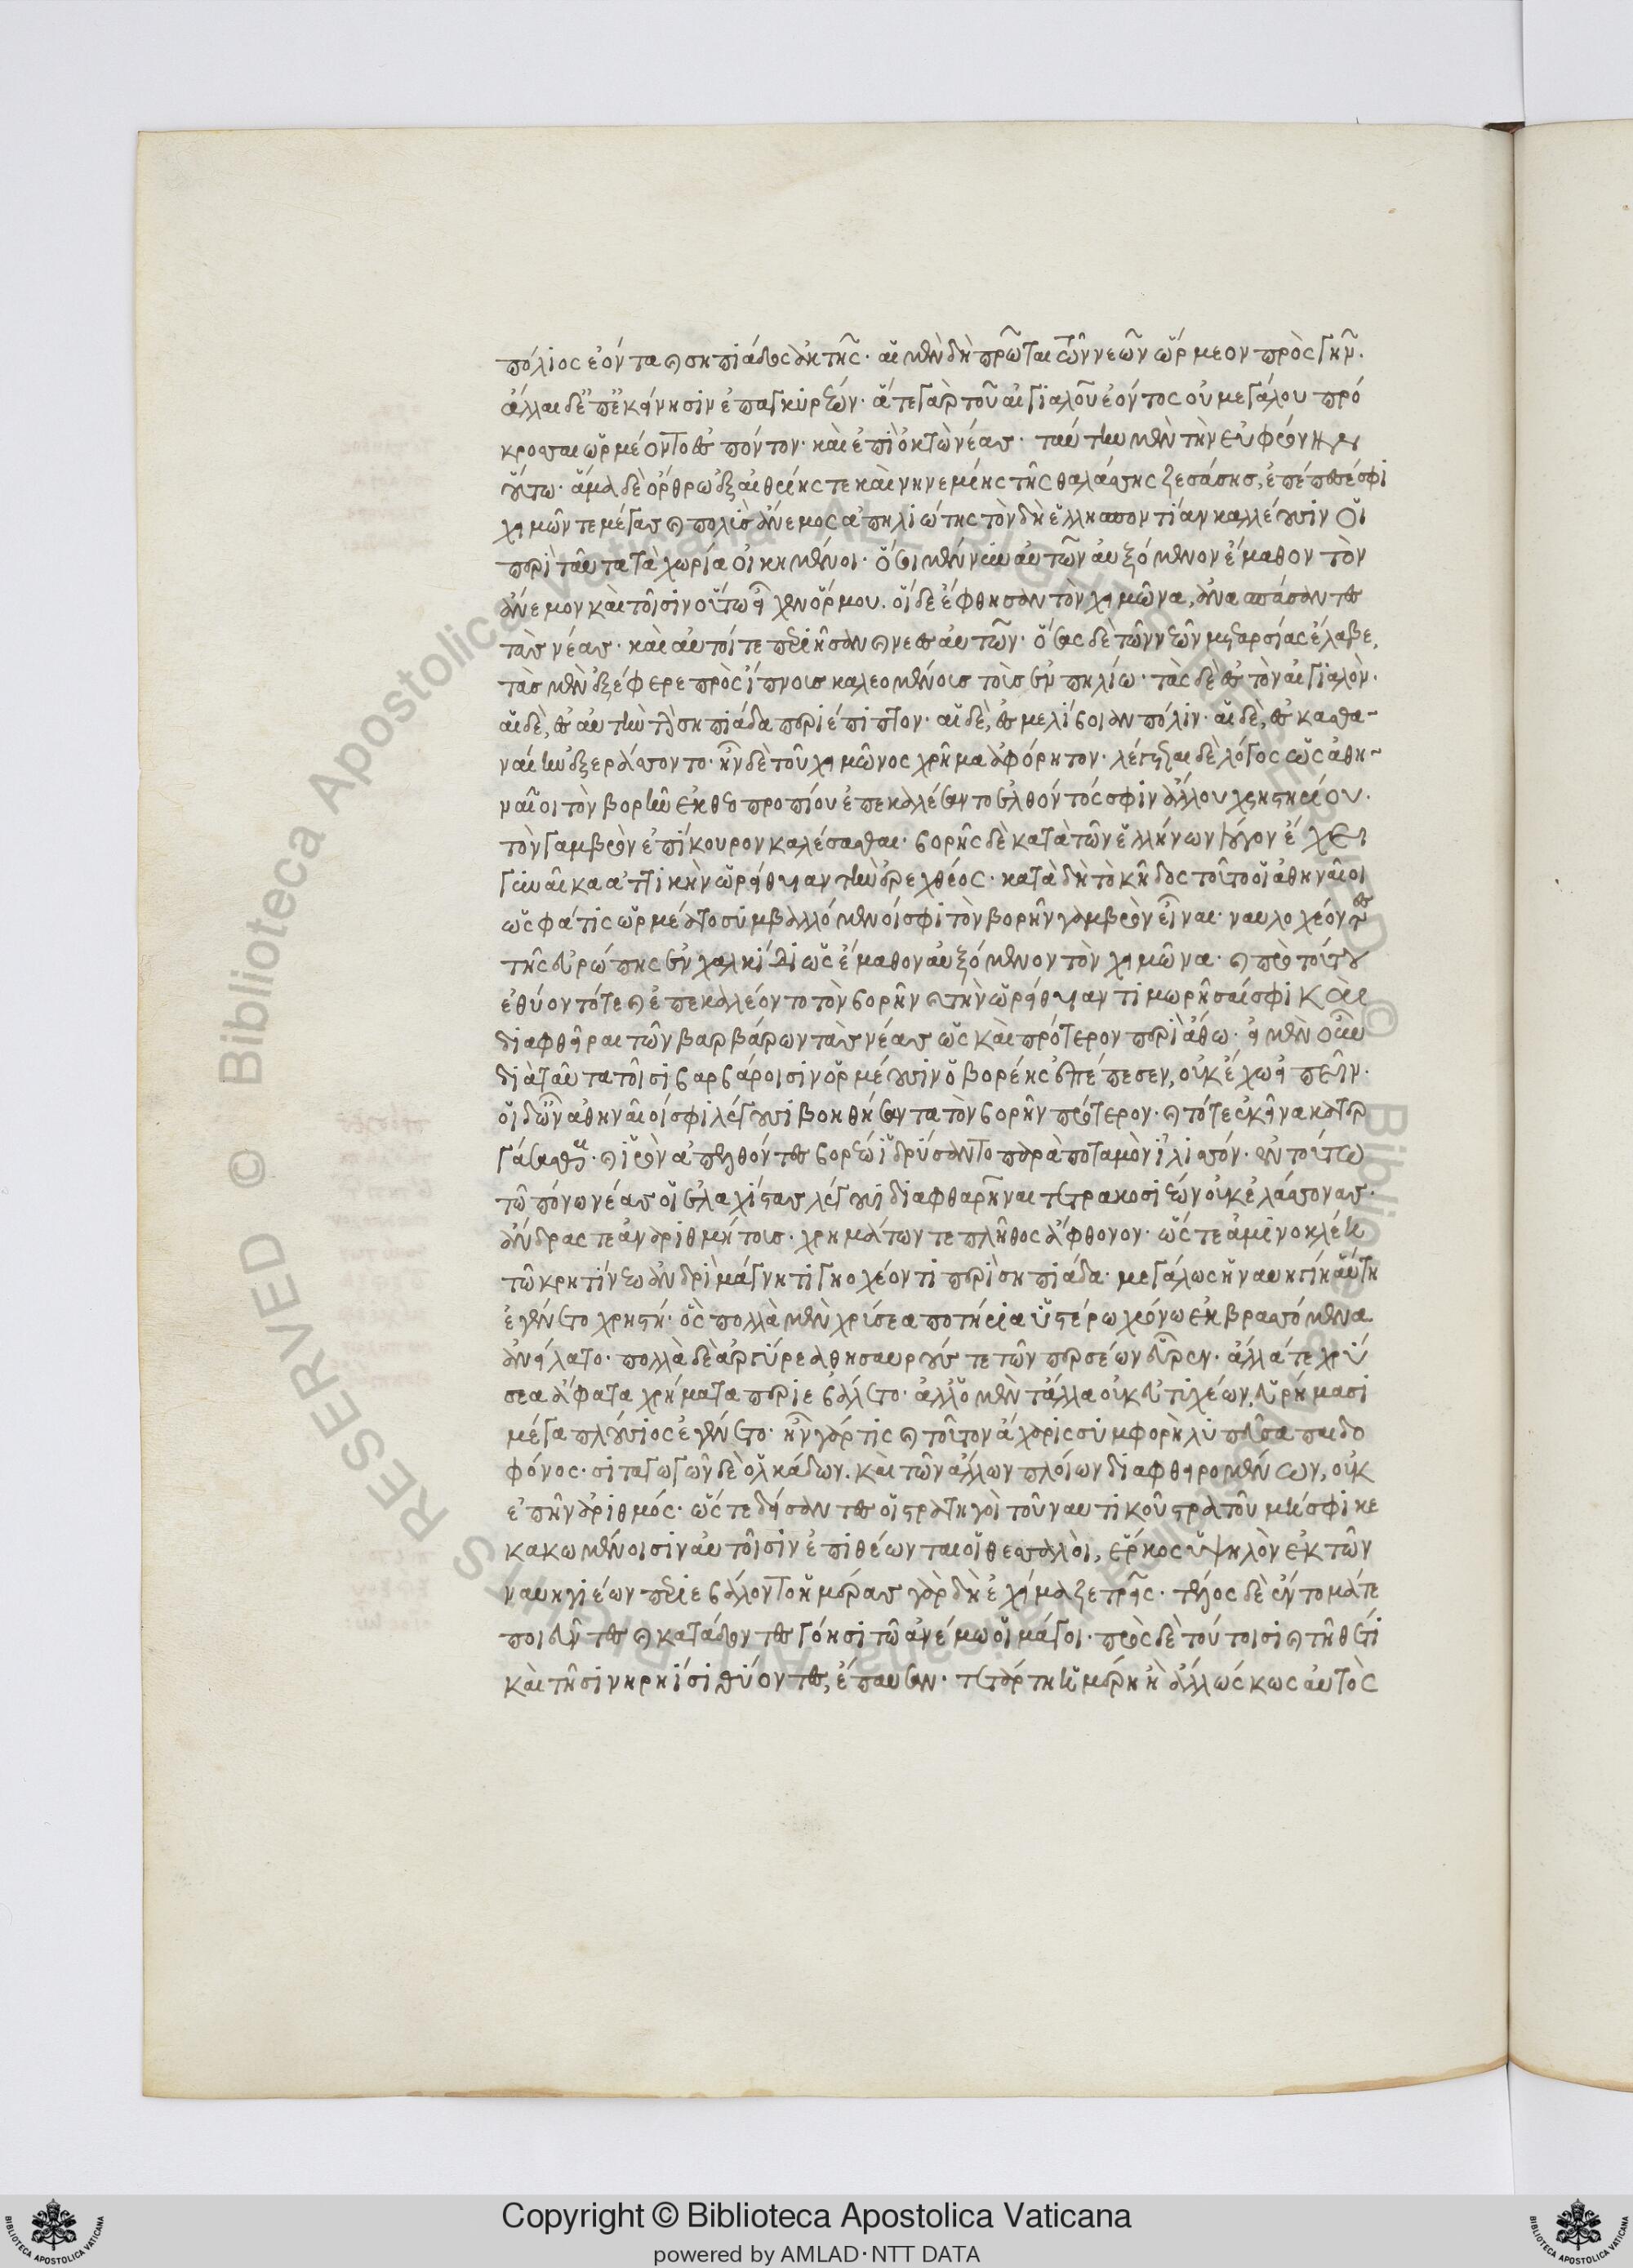 πόλιος ἐόντα καὶ σηπιάδος ἀκτῆς· αἱ μὲν δὴ πρῶται τῶν νεῶν ὥρμεον πρὸς γῆν.
ἄλλαι δ' ἐπ' ἐκείνησιν ἐπ' ἀγκυρέων· ἅτε γὰρ τοῦ αἰγιαλοῦ ἐόντος οὐ μεγάλου πρό
κροσσαι ὡρμέοντο ἐς πόντον· καὶ ἐπὶ ὀκτὼ νέας· ταύτην μὲν τὴν εὐφρόνην
οὕτω· ἅμα δὲ ὄρθρω ἐξ αἰθρίης τε καὶ νηνεμίης τῆς θαλάσσης ζεσάσης, ἐπέπεσέ σφι
χειμῶν τε μέγας καὶ πολλὸς ἄνεμος ἀπηλιώτης τὸν δὴ ἑλλησποντίαν καλλέουσιν οἱ
περὶ ταῦτα τὰ χωρία οἰκημένοι· ὅσοι μέν νυν αὐτῶν αὐξόμενον ἔμαθον τὸν
ἄνεμον καὶ τοῖσιν οὕτω εἶχεν ὅρμου. οἱ δὲ ἔφθησαν τὸν χειμῶνα, ἀνασπάσαντες
τὰς νέας· καὶ αὐτοί τε περιῆσαν καὶ νέες αὐτῶν· ὅσας δὲ τῶν νεῶν μεταρσίας ἔλαβε,
τὰς μὲν ἐξέφερε πρὸς ἴπνους καλεομένους τοὺς ἐν πηλίω· τὰς δὲ ἐς τὸν αἰγιαλόν.
αἱ δὲ, ἐς αὐτὴν τὴν σηπιάδα περιέπιπτον· αἱ δὲ, ἐς μελίβοιαν πόλιν· αἱ δὲ, ἐς κασθα-
ναίην ἐξεβράσσοντο· ἦν δὲ τοῦ χειμῶνος χρῆμα ἀφόρητον· λέγεται δὲ λόγος ὡς ἀθη-
ναῖοι τὸν βορῆν ἐκ θεοπροπίου ἐπεκαλέσαντο ἐλθόντος σφιν ἄλλου χρηστηρίου.
τὸν γαμβρὸν ἐπίκουρον καλέσασθαι· βορῆς δὲ κατὰ τῶν ἑλλήνων λόγον ἔχει
γυναῖκα ἀττικὴν ὠρείθυιαν τὴν ἐρεχθέος· κατὰ δὴ τὸ κῆδος τοῦτο οἱ ἀθηναῖοι
ὡς φάτις ὥρμέατο συμβαλλόμενοί σφι τὸν βορῆν γαμβρὸν εἶναι· ναυλοχέοντες
τῆς εὐρώπης ἐν χαλκίδι ὡς ἔμαθον αὐξόμενον τὸν χειμῶνα· καὶ πρὸ τούτου
ἐθύοντό τε καὶ ἐπεκαλέοντο τὸν βορῆν καὶ τὴν ὠρείθυιαν τιμωρῆσαί σφι καὶ
διαφθεῖραι τῶν βαρβάρων τὰς νέας ὡς καὶ πρότερον περὶ ἄθω· εἰ μὲν νῦν
διὰ ταῦτα τοῖσι βαρβάροισιν ὁρμέουσιν ὁ βορέης ἐπέπεσεν, οὐκ ἔχω εἰπεῖν.
οἱ δ' ὦν ἀθηναῖοί σφι λέγουσι βοηθήσαντα τὸν βορῆν πρότερον· καὶ τότε ἐκεῖνα κατερ
γάσασθαι· καὶ ἱρὸν ἀπελθόντες βορέωι ἱδρύσαντο παρὰ ποταμὸν ἰλισσόν· ἐν τούτω
τῶ πόνω νέας οἳ ἐλαχίστας λέγουσι διαφθαρῆναι τετρακοσιέων οὐκ ἐλάσσονας·
ἄνδρας τε ἀναριθμήτους· χρημάτων τε πλῆθος ἄφθονον· ὥστε ἀμεινοκλέϊ
τῶ κρητίνεω ἀνδρὶ μάγνητι γηοχέοντι περὶ σηπιάδα· μεγάλως ἡ ναυηγίη αὕτη
ἐγένετο χρηστή· ὃς πολλὰ μὲν χρύσεα ποτήρια ὑστέρω χρόνω ἐκβρασσόμενα
ἀνείλατο· πολλὰ δὲ ἀργύρεα θησαυρούς τε τῶν περσέων εὗρεν· ἄλλα τε χρύ
σεα ἄφατα χρήματα περιεβάλετο· ἀλλ' ὁ μὲν τἄλλα οὐκ εὐτυχέων, εὑρήμασι
μέγα πλούσιος ἐγένετο· ἦν γάρ τις καὶ τοῦτον ἄχαρις συμφορὴ λυπεῦσα παιδο
φόνος· σιταγωγῶν δὲ ὁλκάδων. καὶ τῶν ἄλλων πλοίων διαφθειρομένων, οὐκ
ἐπῆν ἀριθμός· ὥστε δείσαντες οἱ στρατηγοὶ τοῦ ναυτικοῦ στρατοῦ μή σφι κε
κακωμένοισιν αὐτοῖσιν ἐπιθέωνται οἱ θεσσαλοὶ, ἕρκος ὑψηλὸν ἐκ τῶν
ναυηγιέων περιεβάλοντο ἡμέρας γὰρ δὴ ἐχείμαζε τρεῖς· τέλος δὲ ἔντομά τε
ποιεῦντες καὶ καταείδοντες γόησι τῶ ἀνέμω οἱ μάγοι· πρὸς δὲ τούτοισι καὶ τῆ θέτι
καὶ τῆσι νηρηίσι θύοντες, ἔπαυσαν· τετάρτη ἡμέρη ἢ ἄλλως κως αὐτὸς